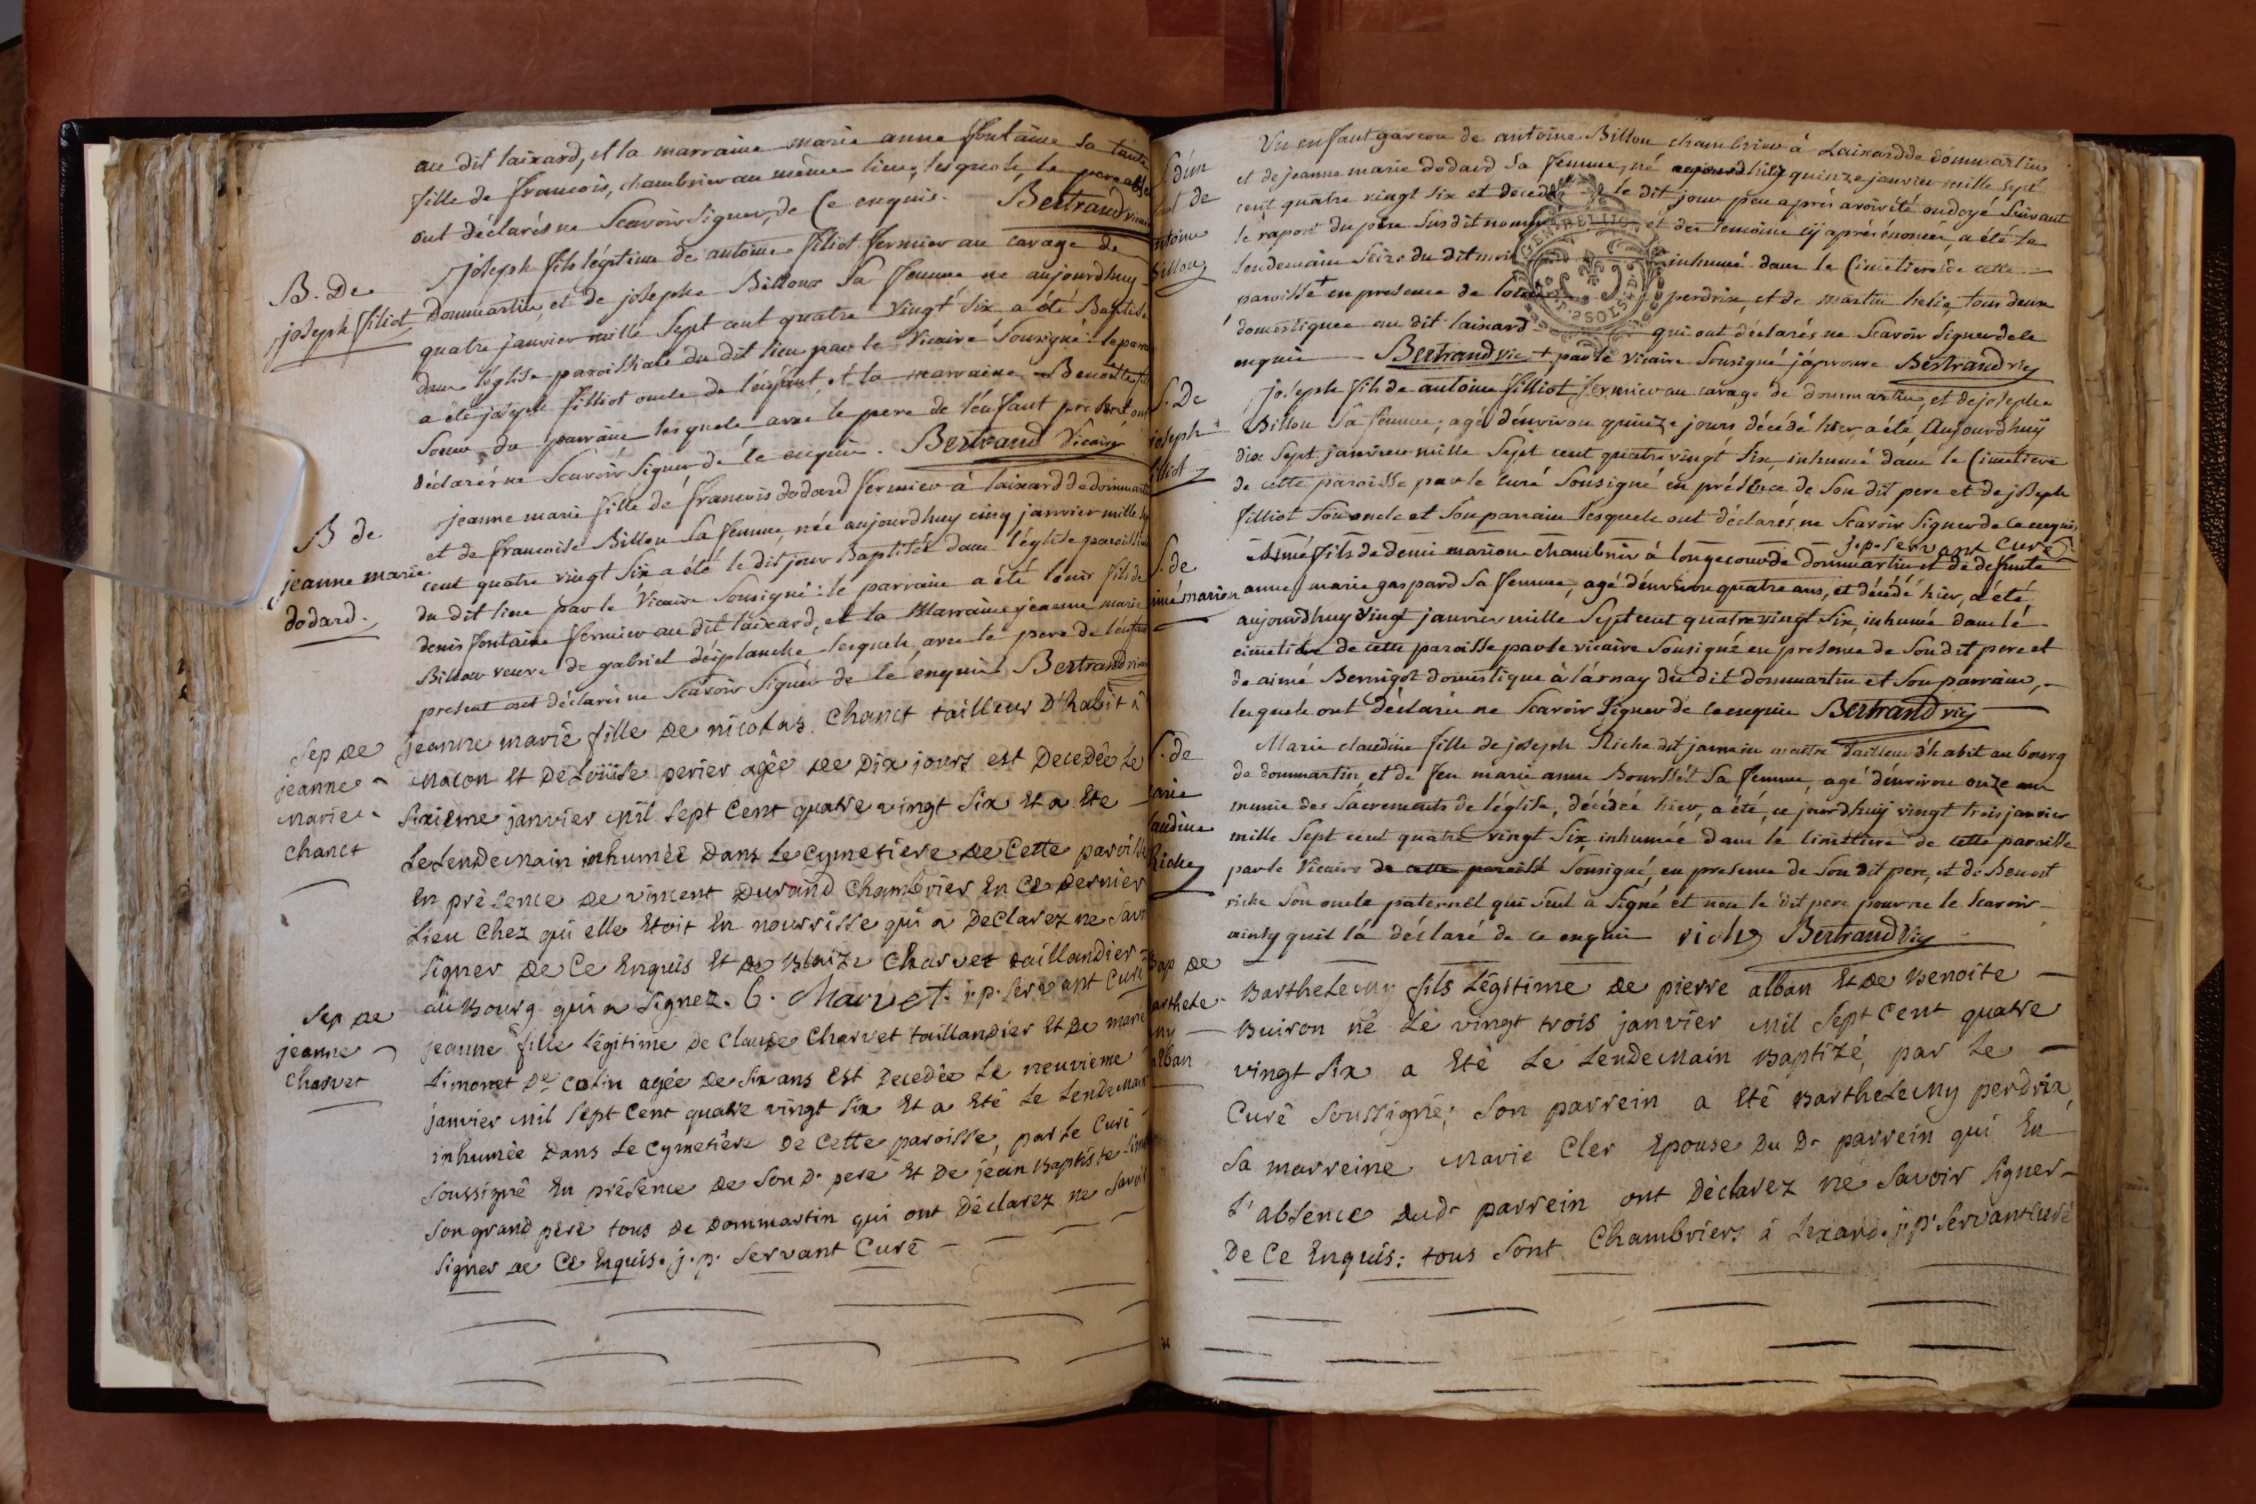 au dit laixard, et la marraine marie anne fontaine sa tante
fille de francois, chambrier au même lieu, lesquels, le pere
ont déclarés ne Scavoir Signer, de Ce enquis. Bertrand vicaire
B. De
joseph filiot
joseph fils légitime de antoine filiot fermier au cavage de
dommartin, et de josephe Billoux Sa femme né aujourdhuy
quatre janvier mille Sept cent quatre vingt Six a été Baptisé
dans l'église paroissiale du dit lieu par le Vicaire Sousigné: le parain
a été joseph filliot oncle de l'enfant, et la marraine Benoitte
Soeur du parrain lesquels avec le pere de l'enfant présent ont
déclarés ne Scavoir Signer, de Ce enquis. Bertrand Vicaire
B de
jeanne marie
dodard.
jeanne marie fille de francois dodard fermier à laixard de dommartin
et de francoise Billou Sa femme, née aujourdhuy cinq janvier mille Sept
cent quatre vingt Six a été le dit jour Baptisée dans l'église paroissiale
du dit lieu par le Vicaire Sousigné: le parrain a été fils de
denis fontaine fermier au dit laixard, et la Marraine jeanne marie
Billou veuve de gabriel desplanche lesquels, avec le pere de l'enfant
present ont déclarés ne Scavoir Signer de Ce enquis Bertrand vicaire
Sep de
jeanne
marie
chanet
jeanne marie fille de nicolas Chanet tailleur D'habit à
macon Et De Loüise perier agée de Dix jours est Decedée Le
Sixieme janvier mil Sept Cent quatre vingt Six Et a Eté
Le Lendemain inhumée Dans Le Cymetiere de Cette paroisse
En présence de vincent Durand Chambrier En Ce Dernier
Lieu Chez qui elle Etoit En nourrisse qui a Declarez ne Savoir
Signer de Ce Enquis Et de Blaize Charvet taillandier
au Bourg qui a Signez. C. Charvet. j. p. Servant Curé
Sep de
jeanne
Charvet
jeanne fille Légitime de Claude Charvet taillandier Et De marie
Limonet De catin agée de Six ans Est Decedée Le neuvieme
janvier mil Sept Cent quatre vingt Six Et a Eté Le Lendemain
inhumée Dans Le Cymetiere De Cette paroisse, par Le Curé
Soussigné En présence de Son Dt pere Et De jean Baptiste
Son grand pere tous De Dommartin qui ont Déclarez ne Savoir
Signer de Ce Enquis. j. p. Servant Curé
S. d'un
de
antoine
Billou
Un enfant garcon de antoine Billou chambrier à Laixard de dommartin
et de jeanne marie dodard Sa femme, né aujourd'huy quinze janvier mille Sept
cent quatre vingt Six et décédé le dit jour peu après avoir été ondoyé Suivant
le raport du père Susdit nommé et des temoins cy après nommés, a été le
lendemain Seize du dit mois inhumé dans le Cimetiere de cette
paroisse + en presence de perdrix, et de martin helie, tous deux
domestiques au dit laixard qui ont déclarés ne Scavoir Signer de Ce
enquis Bertrand vic + par le vicaire Sousigné j'aprouve Bertrand vic
S. De
joseph
filiot
joseph fils de antoine filliot, fermier au cavage de dommartin, et de josephe
Billou Sa femme, agé d'environ quinze jours décédé hier a été, Aujourdhuy
dix Sept janvier mille Sept cent quatre vingt Six, inhumé dans le Cimetiere
de cette paroisse par le curé Sousigné en présence de Son dit pere et de joseph
filliot Son oncle et Son parrain lesquels ont déclarés ne Scavoir Signer de Ce enquis
j. p. Servant Curé
S. de
aimé marion
Aimé fils de denis marion chambrier à longecour de dommartin et de defunte
anne marie gaspard Sa femme, agé d'environ quatre ans, et décédé hier, a été
aujourdhuy Vingt janvier mille Sept cent quatre vingt Six, inhumé dans le
cimetiere de cette paroisse par le vicaire Sousigné en presence de Son dit pere et
de aimé Bernigot domestique à l'arnay du dit dommartin et Son parrain,
lesquels ont déclaré ne Scavoir Signer de Ce enquis Bertrand vic
S. de
marie
claudine
Riche
Marie claudine fille de joseph Riche dit jannin maitre Tailleur d'habit au bourg
de dommartin et de feu marie anne Boursset Sa femme, agé d'environ onze ans
munie des Sacrements de l'église, décédée hier, a été, ce jourdhuy vingt trois janvier
mille Sept cent quatre vingt Six, inhumée dans le Cimetiere de cette paroisse
par le Vicaire de cette paroisse Sousigné, en presence de Son dit pere, et de Benoit
riche Son oncle paternel qui Seul a Signé et non le dit pere pour ne le Scavoir
ainsy quil l'a déclaré de ce enquis riche Bertrand Vic
Bap de
Barthele
my
alban
Barthelemy fils Légitime de pierre alban Et de Benoite
Buiron né Le vingt trois janvier mil Sept Cent quatre
vingt Six a Eté Le Lendemain Baptizé, par Le
Curé Soussigné; Son parrein a Eté Barthelemy perdrix
Sa marreine Marie Cler Epouse Du Dt parrein qui En
L'absence Dudt parrein ont Déclarez ne Savoir Signer
De Ce Enquis: tous Sont Chambriers à Lexard. j. p. Servant Curé